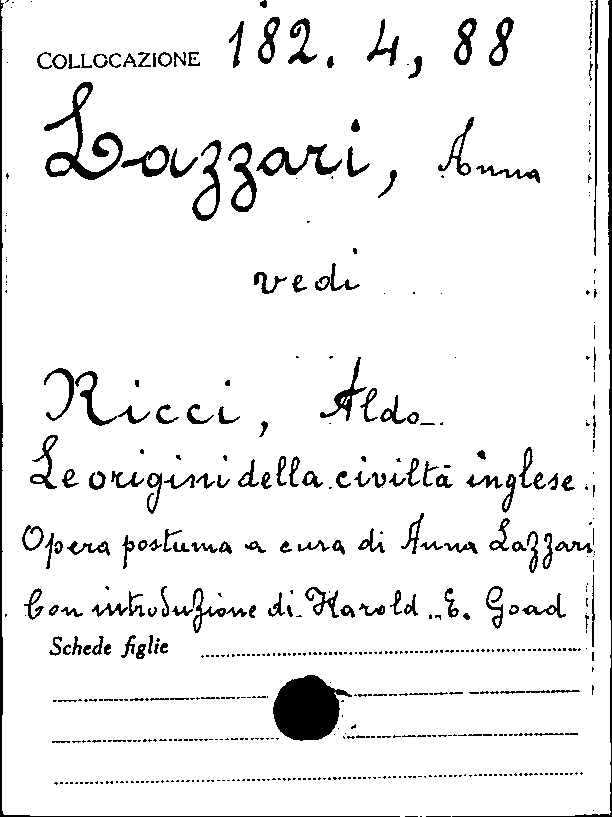 COLLOCAZIONE 182. 4, 88
Lazzari, Anna
vedi
Ricci, Aldo
Le origini della civiltà inglese.
Opera postuma a cura di Anna Lazzari
Con introduzione di Harold E. Goad
Schede figlie